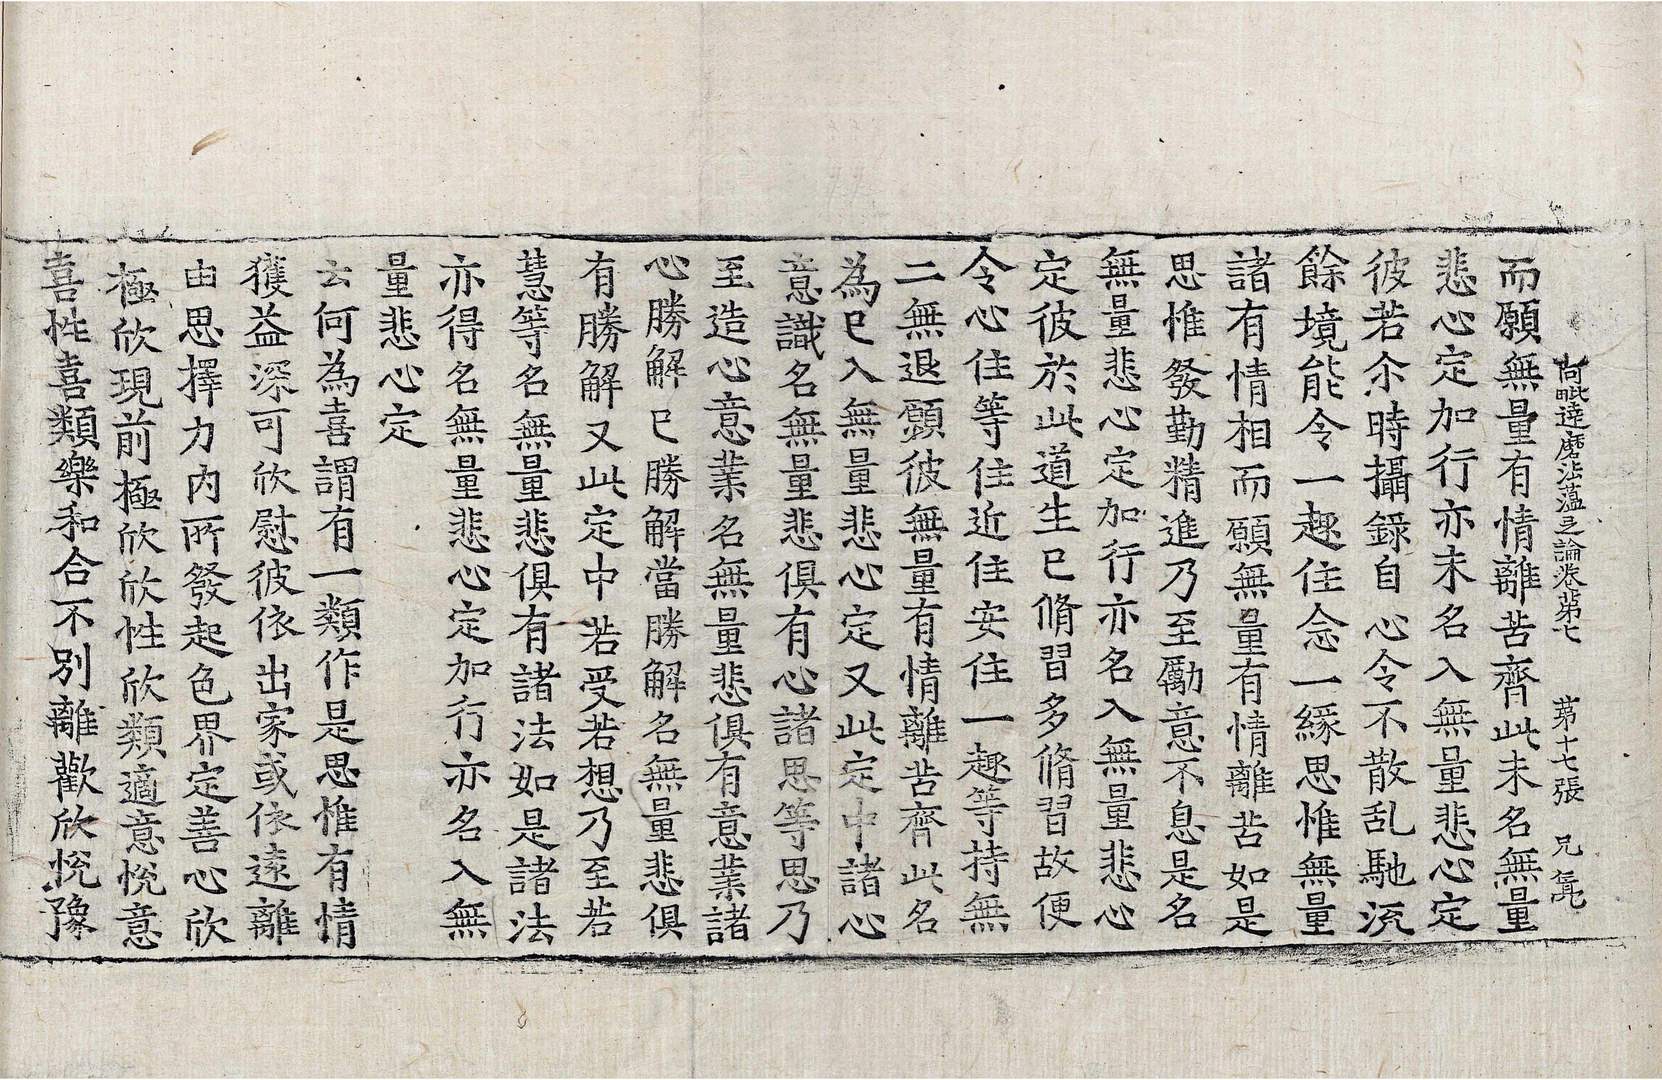 阿毗達磨法蘊足論卷苐七　苐十七張　兄氣
而願無量有情離苦齊此未名無量
悲心定加行亦未名入無量悲心定
彼若尒時攝錄自心令不散乱馳流
餘境能令一趣住念一緣思惟無量
諸有情相而願無量有情離苦如是
思惟發勤精進乃至勵意不息是名
無量悲心定加行亦名入無量悲心
定彼於此道生已脩習多脩習故便
令心住等住近住安住一趣等持無
二無退願彼無量有情離苦齊此名
為已入無量悲心定又此定中諸心
意識名無量悲俱有心諸思等思乃
至造心意業名無量悲俱有意業諸
心勝解已勝解當勝解名無量悲俱
有勝解又此定中若受若想乃至若
慧等名無量悲俱有諸法如是諸法
亦得名無量悲心定加行亦名入無
量悲心定
云何為喜謂有一類作是思惟有情
獲益深可欣慰彼依出家或依遠離
由思擇力內所發起色界定善心欣
極欣現前極欣欣性欣類適意悅意
喜性喜類樂和合不別離歡欣悅豫